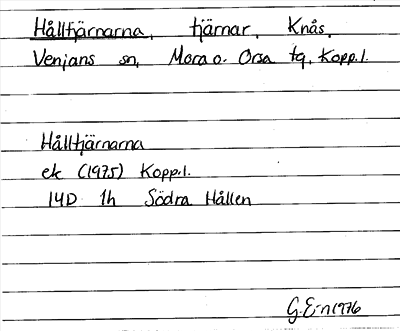 Hålltjärnarna, tjärnar, Knås,
Venjans sn, Mora o. Orsa tg, Kopp.l.
Hålltjärnarna
ek (1975) Kopp.l.
14D 1h Södra Hållen
G.E-n 1976